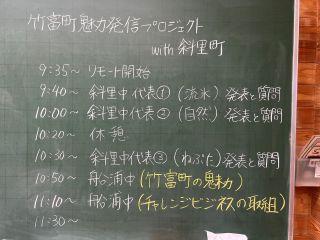 竹富町魅力発信プロジェクト
with 斜里町
9:35～ リモート開始
9:40～ 斜里中代表①(流氷)発表と質問
10:00～ 斜里中代表②(自然)発表と質問
10:20～ 休憩
10:30～ 斜里中代表③(ねぷた)発表と質問
10:50～ 船浦中(竹富町の魅力)
11:10～ 船浦中(チャレンジビジネスの取組)
11:30～